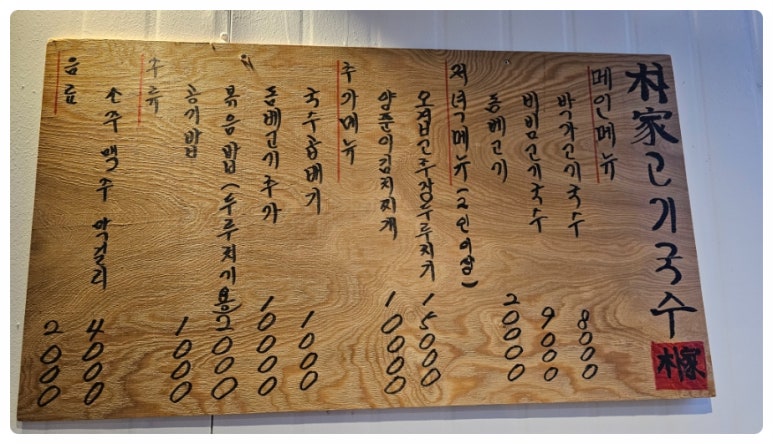 朴家고기국수
朴家
메인메뉴
박가고기국수 8000
비빔고기국수 9000
돔베고기 20000
저녁메뉴(2인이상)
오겹고추장두루치기 15000
양푼이김치찌개 10000
추가메뉴
국수곱배기 1000
돔베고기추가 10000
볶음밥(두루치기용) 2000
공기밥 1000
주류
소주 맥주 막걸리 4000
음료 2000